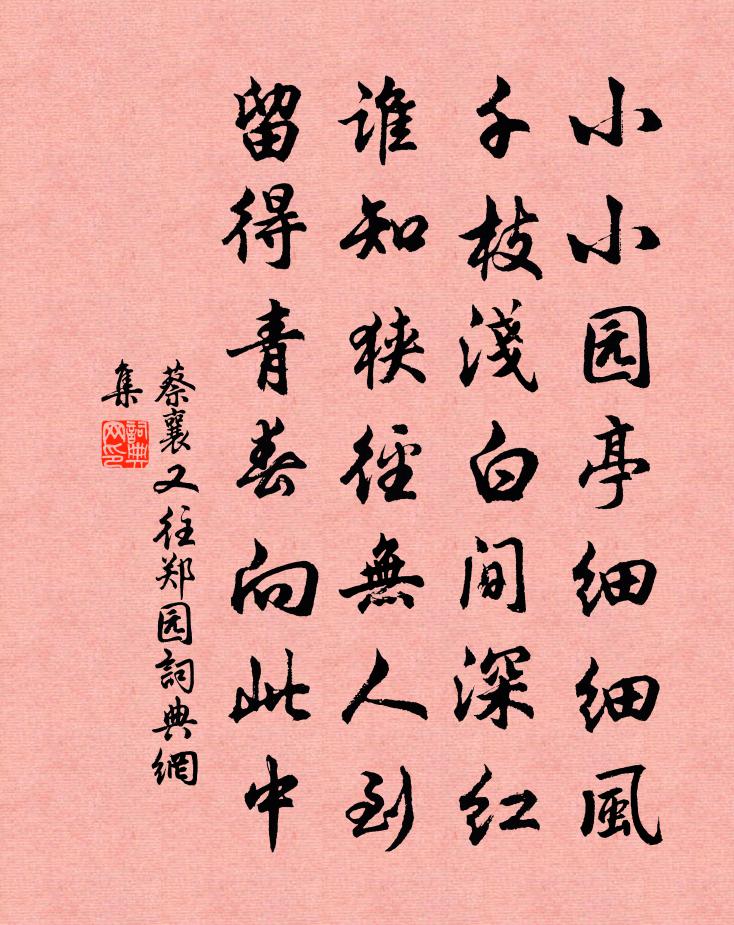 小小园亭细细風
千枝淺白间深红
谁知狭徑無人到
留得青春向此中
蔡襄又往郑园詞典網
集
詞典网印